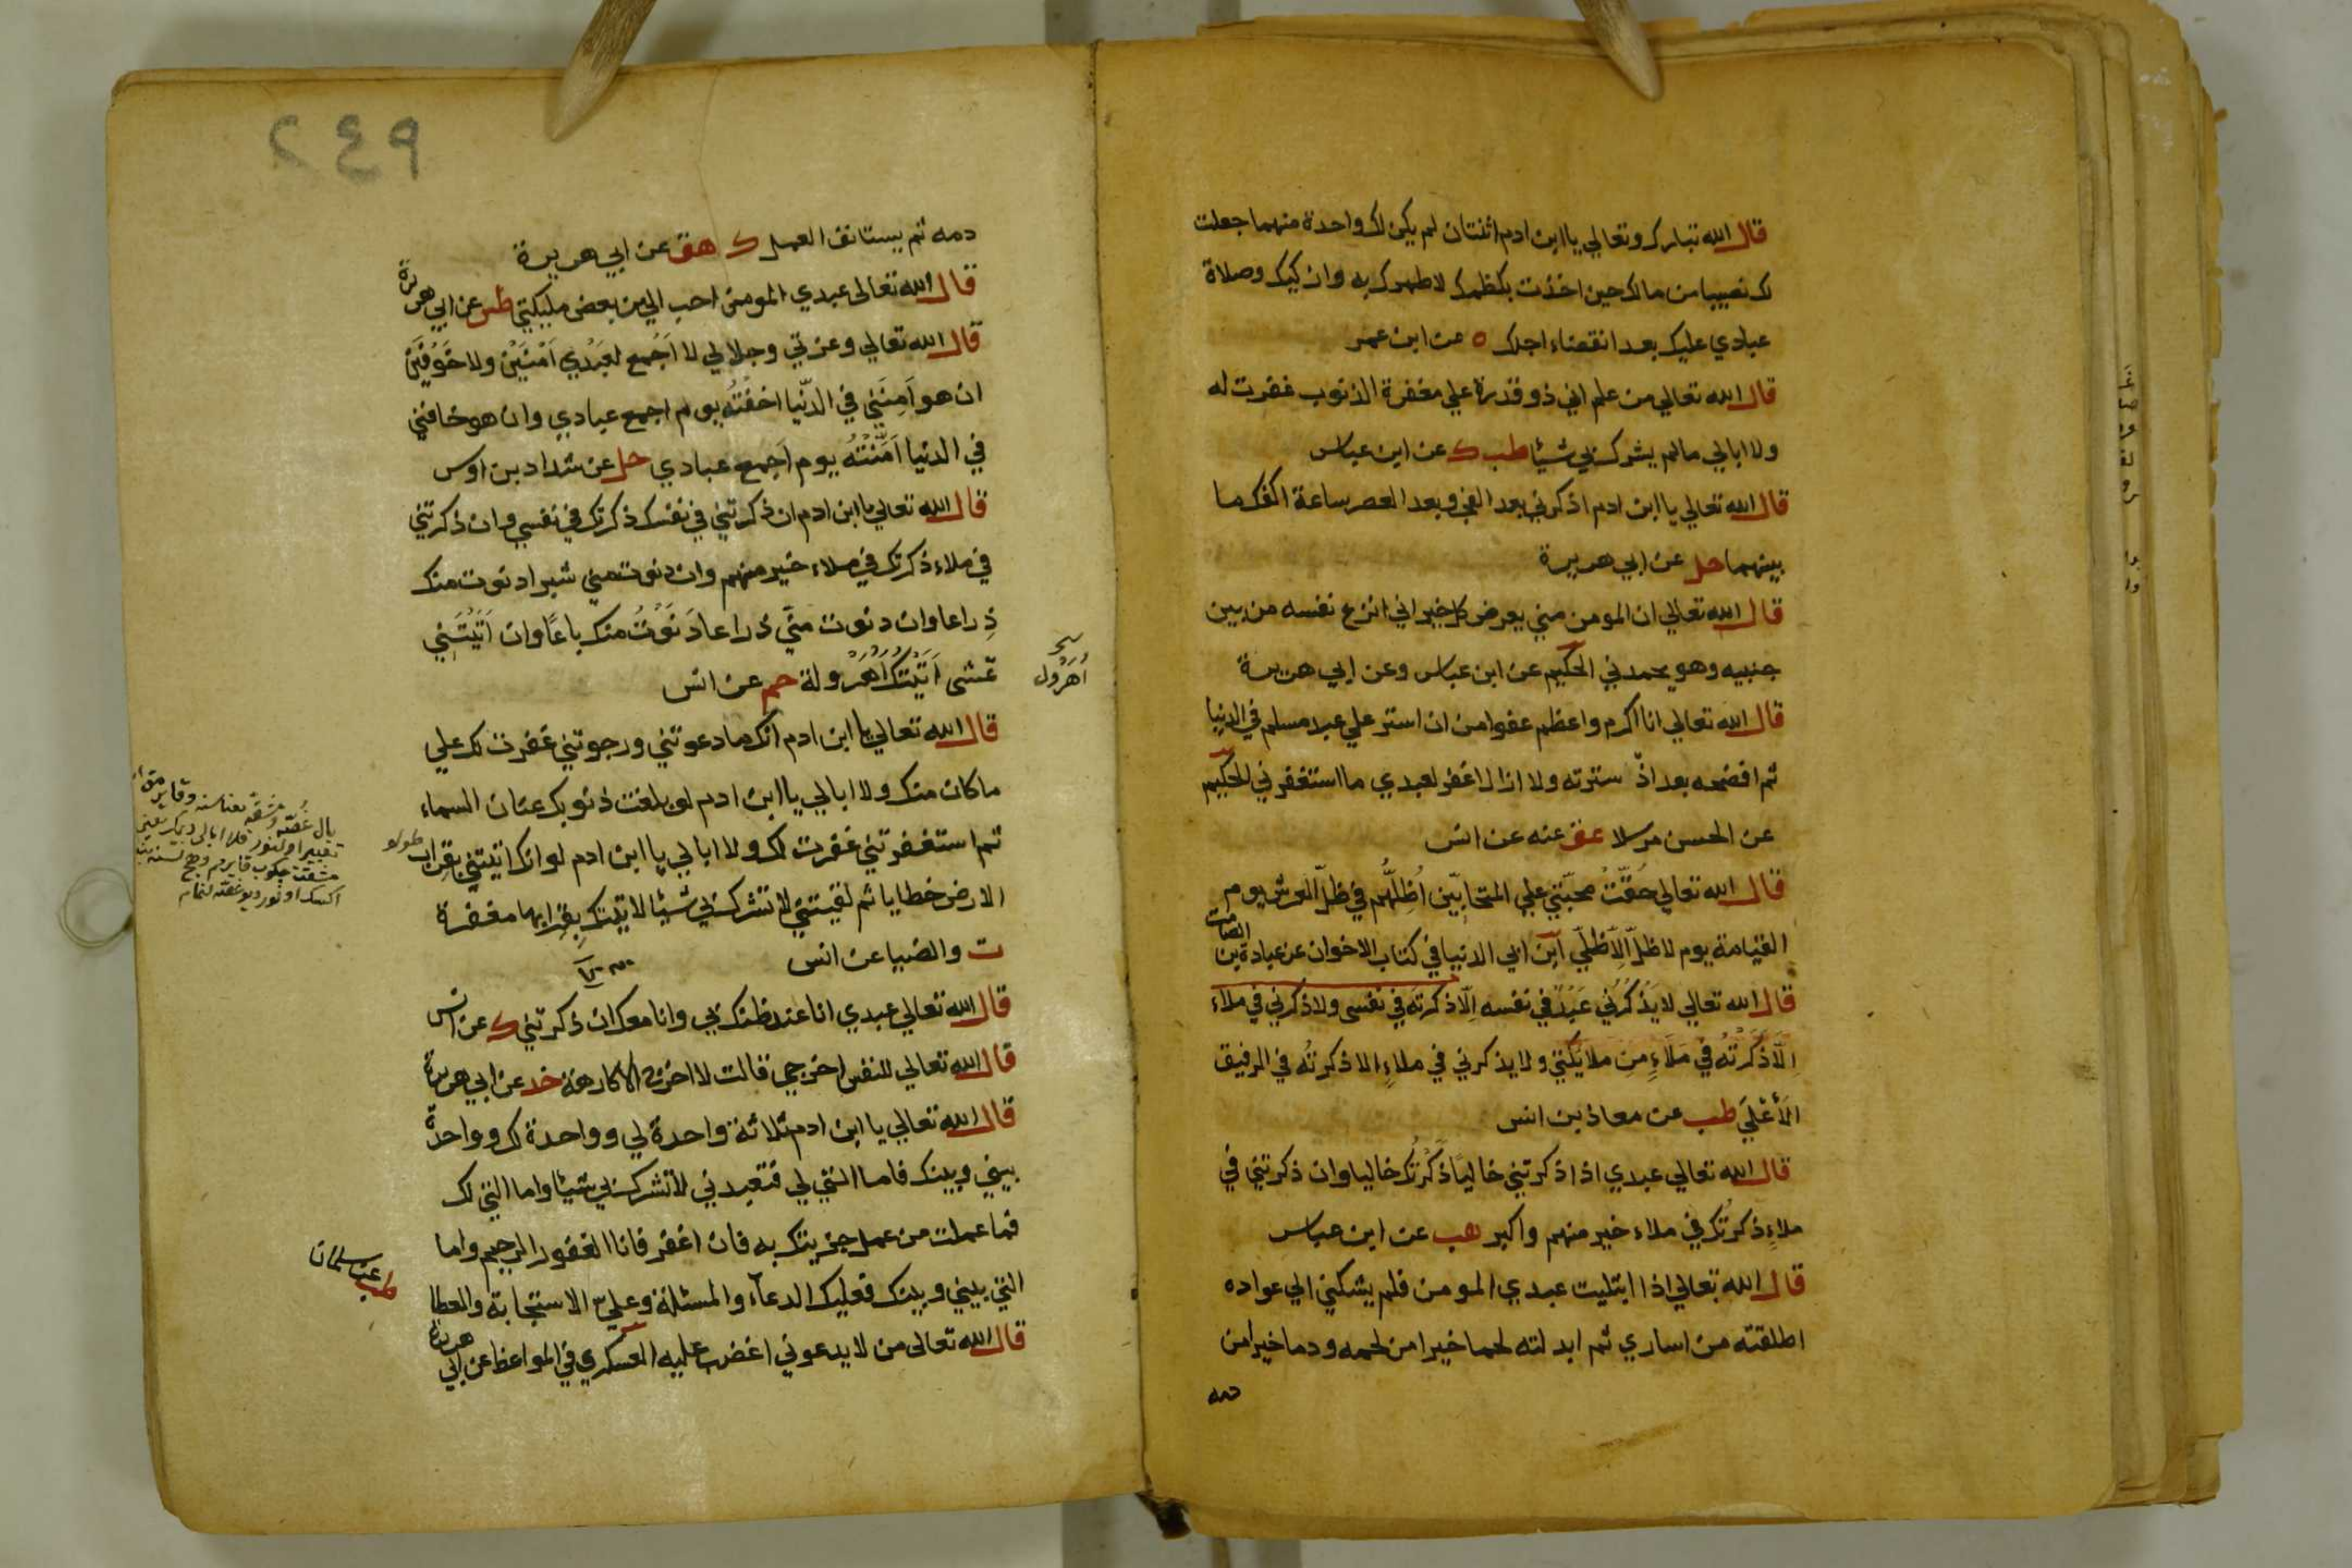 قال الله تبارك وتعالي يا ابن ادم اثنتان لم يكن لك واحدة منهما جعلت
لك نصيبا من مالك حين اخذت بكظمك لاطهرك به وازكيك وصلاة
عبادي عليك بعد انقضاء اجلك ه عن ابن عمر
قال الله تعالي من علم اني ذو قدرة علي مغفرة الذنوب غفرت له
ولا ابالي مالم يشرك بي شيئا طب ك عن ابن عباس
قال الله تعالي يا ابن ادم اذكرني بعد الفجر وبعد العصر ساعة اكفك ما
بينهما حل عن ابي هريرة
قال الله تعالي ان المومن مني بعرض كل خير اني انزع نفسه من بين
جنبيه وهو يحمدني الحكيم عن ابن عباس وعن ابي هريرة
قال الله تعالي انا اكرم واعظم عفوا من ان استر علي عبد مسلم في الدنيا
ثم افضحه بعد اذ سترته ولا ازال اغفر لعبدي ما استغفرني الحكيم
عن الحسن مرسلا عق عنه عن انس
قال الله تعالي حُقَّتْ محبّتي علي المتحابّين اُظِلُّهُم في ظلّ العرش يوم
القيامة يوم لا ظلّ اِلّا ظلّي ابن ابي الدنيا في كتاب الاخوان عن عبادة بن
الصامت
قال الله تعالي لا يَذْكُرُني عَبْدٌ في نفسه اِلّا ذكرته في نفسى ولا ذكرني في ملاء
اِلّا ذَكَرْتُه في مَلَاءٍ مِن ملايكتي ولا يذكرني في ملاءٍ الا ذكرتُه في الرفيق
الأَعْلَي طب عن معاذ بن انس
قال الله تعالي عبدي اذا ذكرتني خالياً ذَكَرْتُك خاليا وان ذكرتني في
ملاءٍ ذكرتُك في ملاء خير منهم واكبر هب عن ابن عباس
قال الله تعالي اذا ابتليت عبدي المومن فلم يشكني الي عواده
اطلقته من اساري ثم ابدلته لحما خيرا من لحمه ودما خيرا من
دمه
٢٤٩
دمه ثم يستانف العمل ك هق عن ابي هريرة
قال الله تعالى عبدي المومن احب الي من بعض مليكتي طس عن ابي هريرة
قال الله تعالي وعزتي وجلالي لا اَجْمع لعَبْدي اَمْنَيْنْ ولا خَوْفَيْنْ
ان هو اَمِنَني في الدّنيا اخفْتُه يوم اجمع عبادي وان هو خافني
في الدنيا اَمَّنْتُهُ يوم اَجمع عبادي حل عن شداد بن اوس
قال الله تعالي يا ابن ادم ان ذكرتني في نفسك ذكرتك في نفسي وان ذكرتني
في ملاء ذكرتك في ملاء خير منهم وان دنوت مني شبرا دنوت منك
ذِراعا وان دنوت منّي ذراعا دَنَوْتُ منك باعًا وان اَتَيْتَني
تمشى اَتَيْتُك اُهَرْولة حم عن انس
اُهَرْول
قال الله تعالي يا ابن ادم انك ما دعوتني ورجوتني غفرت لك علي
ما كان منك ولا ابالي يا ابن ادم لو بلغت ذنوبك عنان السماء
ثم استغفرتني غفرت لك ولا ابالي يا ابن ادم لو انك اتيتني بقراب
طولو
الارض خطايا ثم لقيتني لا تشرك بي شيئا لاتيتك بقرابها مغفرة
ت والضيا عن انس
قال الله تعالي عبدي انا عند ظنك بي وانا معك ان ذكرتني ك عن انس
قال الله تعالي للنفس اخرجي قالت لا اخرج الا كارهة خد عن ابي هريرة
قال الله تعالي يا ابن ادم ثلاثة واحدة لي وواحدة لك وواحدة
بيني وبينك فاما التي لي فتعبدني لا تشرك بي شيئا واما التي لك
فما عملت من عمل جزيتك به فان اغفر فانا الغفور الرحيم واما
التي بيني وبينك فعليك الدعآء والمسئلة وعليّ الاستجابة والعطا
طب عن سلمان
قال الله تعالى من لا يدعوني اغضب عليه العسكري في المواعظ عن ابي هريرة